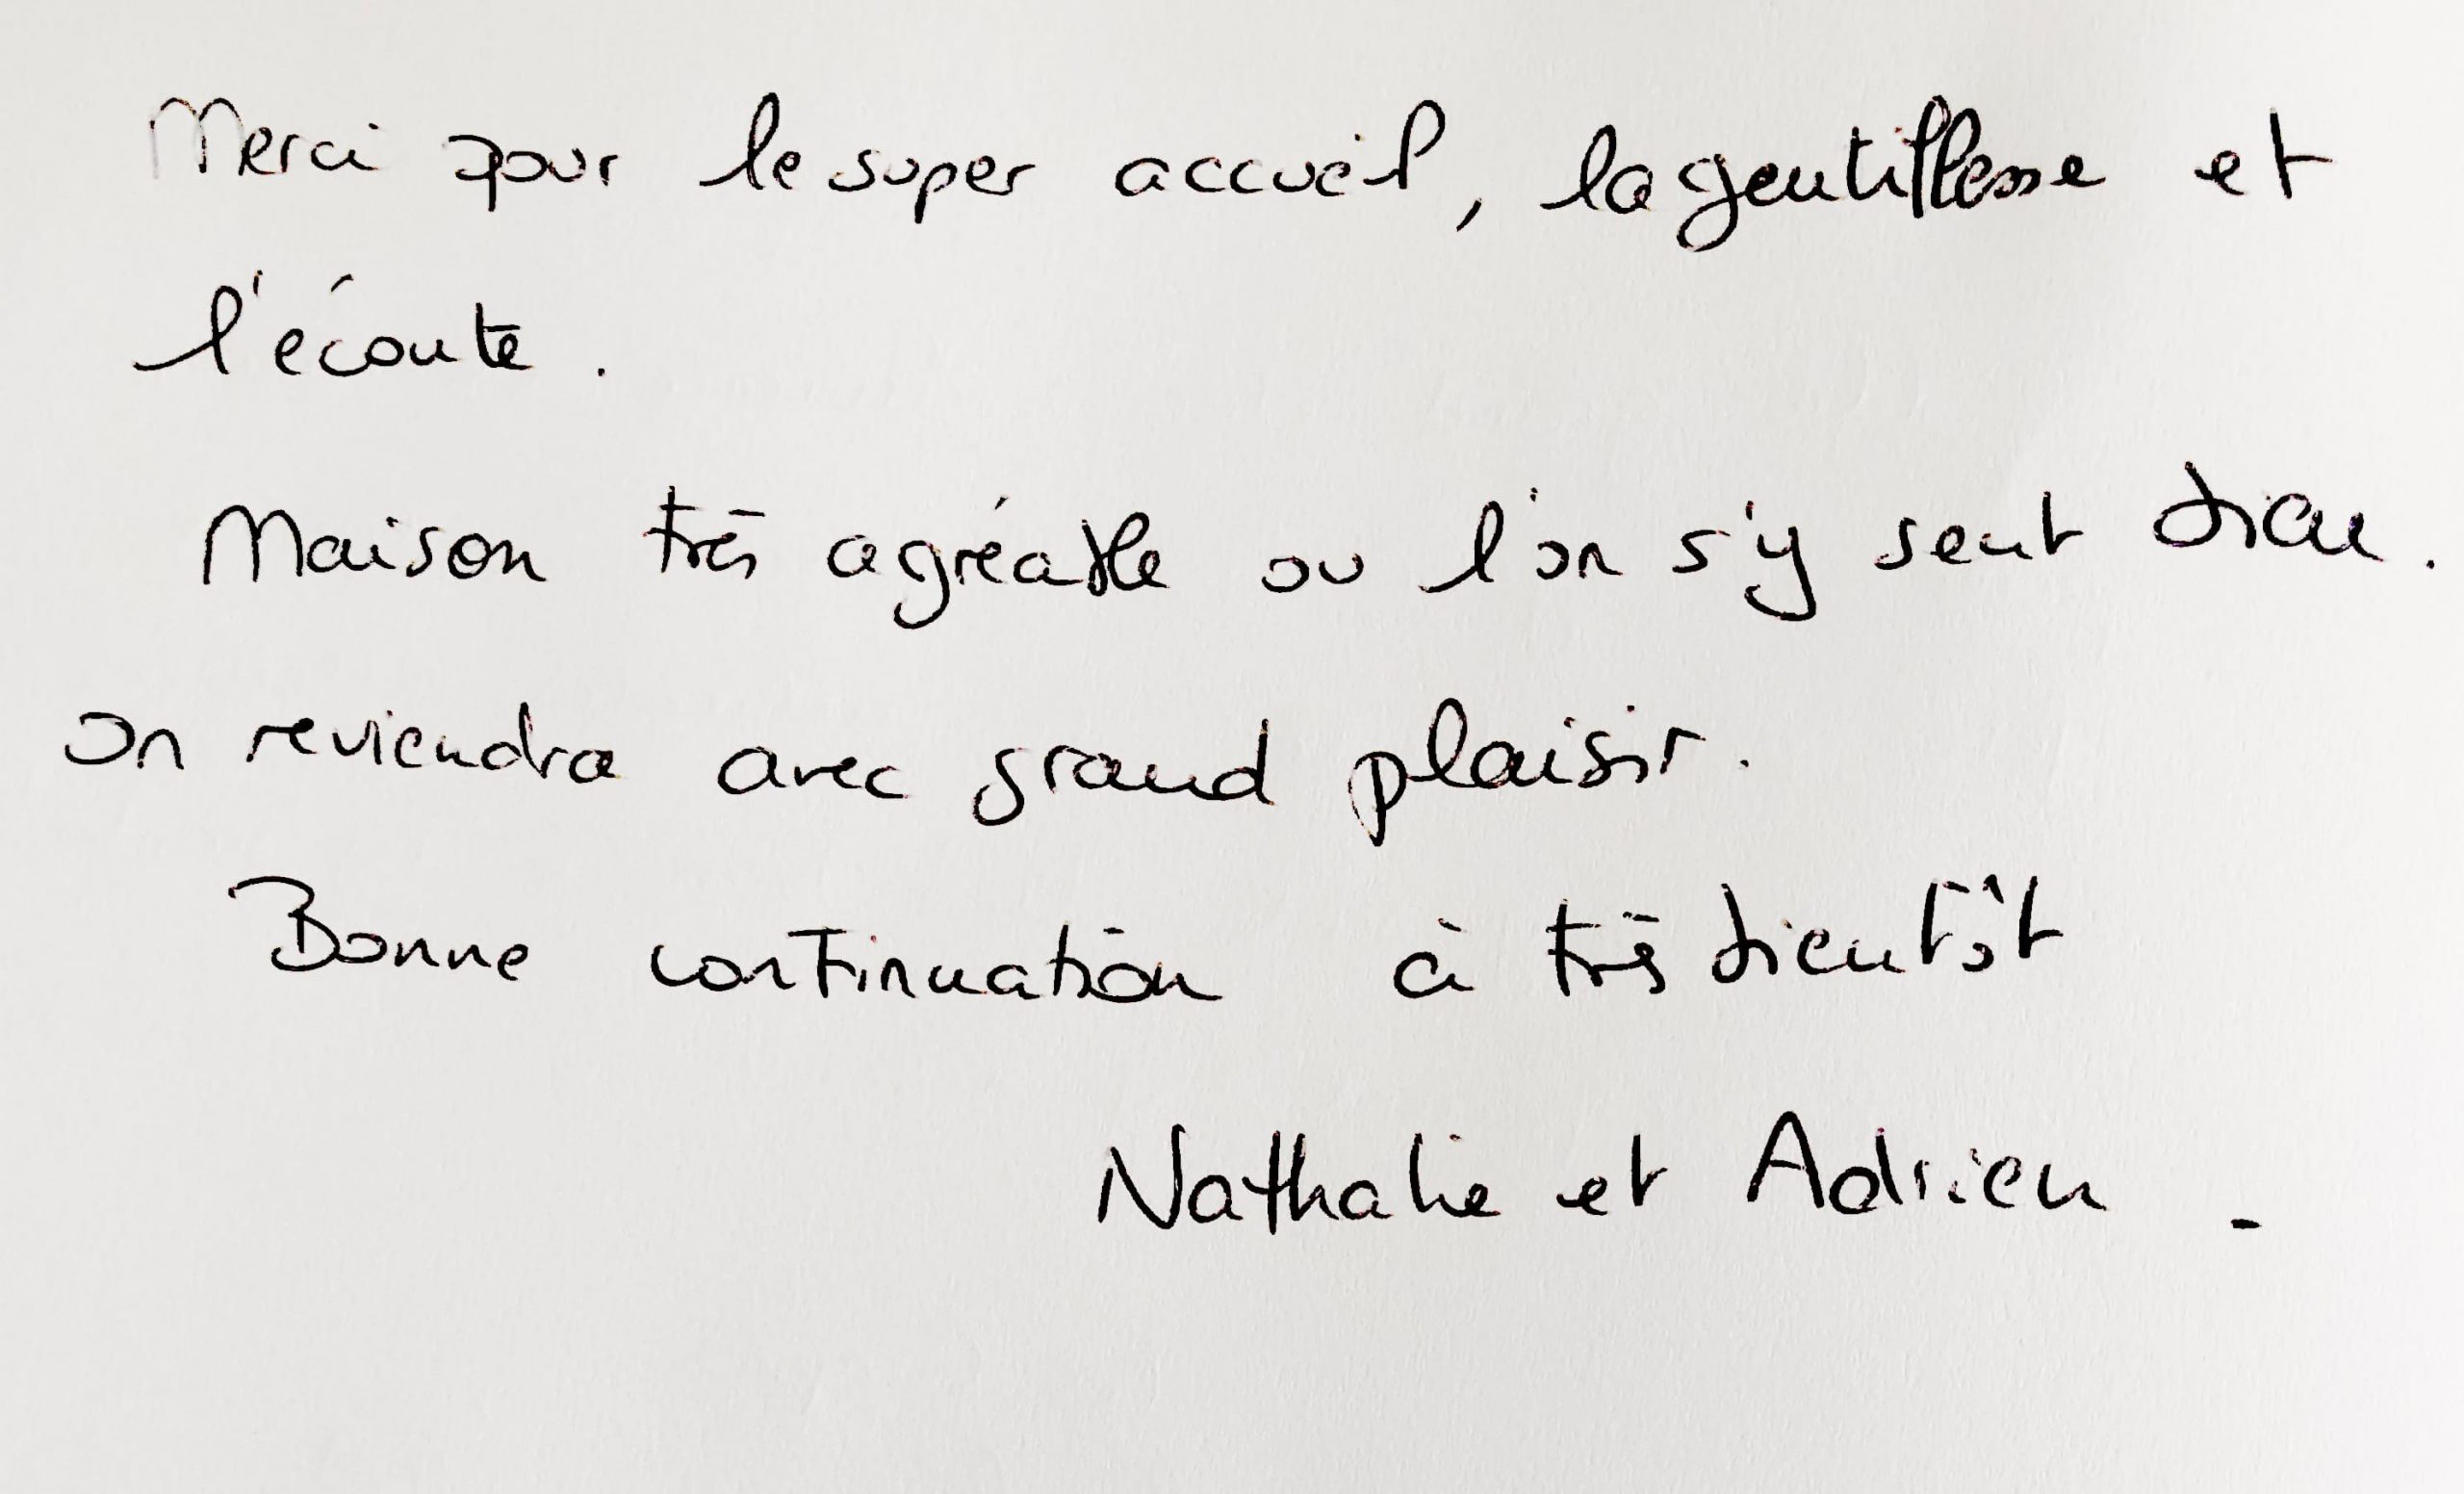 Merci pour le super accueil, la gentillesse et
l'écoute.
Maison très agréable ou l'on s'y sent bien.
on reviendra avec grand plaisir.
Bonne continuation à très bientôt
Nathalie et Adrien -